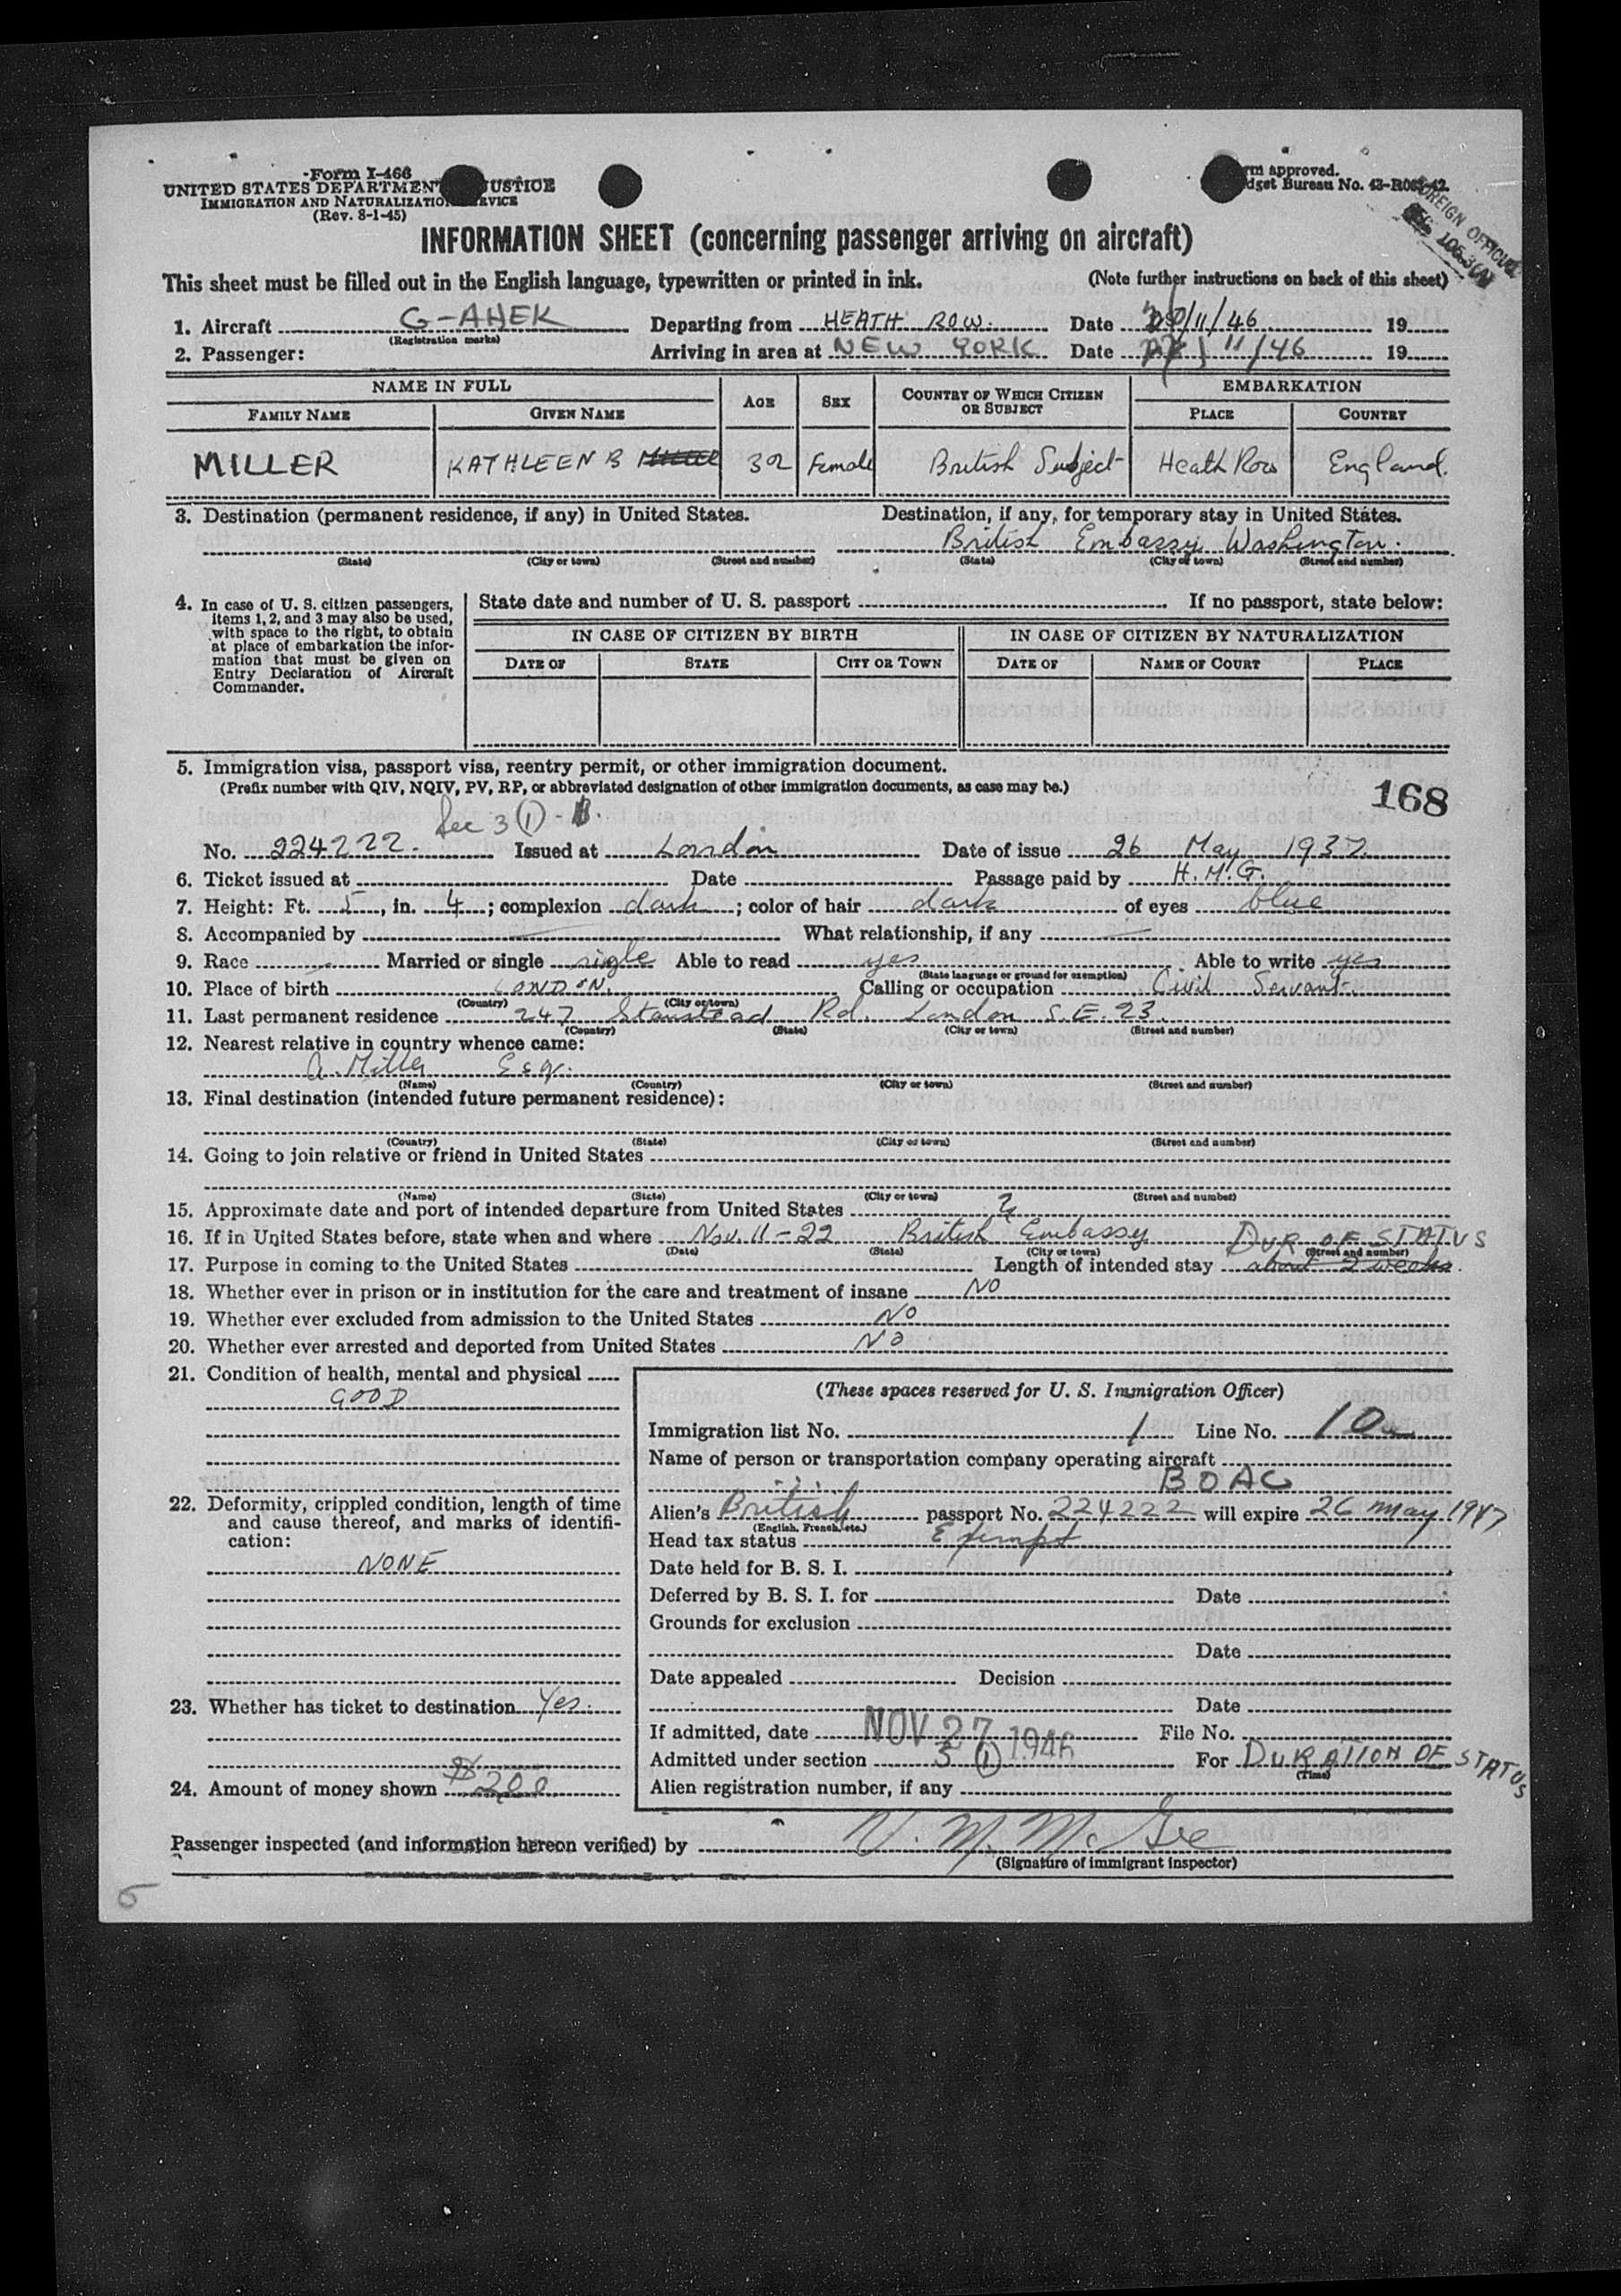 Form I-466
UNITED STATES DEPARTMENT JUSTICE
IMMIGRATION AND NATURALIZATION SERVICE
(Rev. 8-1-45)
rm approved.
dget Bureau No. 43-R063-42.
FOREIGN OFFICIAL
INFORMATION SHEET (concerning passenger arriving on aircraft)
This sheet must be filled out in the English language, typewritten or printed in ink. (Note further instructions on back of this sheet)
1. Aircraft G-AHEK Departing from HEATH ROW. Date /11/46 19
(Registration marks)
2. Passenger: Arriving in area at NEW YORK Date 11/46 19
NAME IN FULL AGE SEX COUNTRY OF WHICH CITIZEN OR SUBJECT EMBARKATION
FAMILY NAME GIVEN NAME PLACE COUNTRY
MILLER KATHLEEN B 32 Female British Subject Heath Row England.
3. Destination (permanent residence, if any) in United States. Destination, if any, for temporary stay in United States.
British Embassy Washington.
(State) (City or town) (Street and number) (State) (City or town) (Street and number)
4. In case of U. S. citizen passengers, items 1, 2, and 3 may also be used, with space to the right, to obtain at place of embarkation the information that must be given on Entry Declaration of Aircraft Commander.
State date and number of U. S. passport If no passport, state below:
IN CASE OF CITIZEN BY BIRTH IN CASE OF CITIZEN BY NATURALIZATION
DATE OF STATE CITY OR TOWN DATE OF NAME OF COURT PLACE
5. Immigration visa, passport visa, reentry permit, or other immigration document.
(Prefix number with QIV, NQIV, PV, RP, or abbreviated designation of other immigration documents, as case may be.)
168
Sec 3 (1) -
No. 224222. Issued at London Date of issue 26 May 1937
6. Ticket issued at Date Passage paid by H.M.G.
7. Height: Ft. 5, in. 4; complexion dark; color of hair dark of eyes blue
8. Accompanied by What relationship, if any
9. Race Married or single single Able to read yes Able to write yes
(State language or ground for exemption)
10. Place of birth LONDON. Calling or occupation Civil Servant.
(Country) (City or town)
11. Last permanent residence 247 Stanstead Rd. London S.E. 23.
(Country) (State) (City or town) (Street and number)
12. Nearest relative in country whence came:
A. Miller Esq.
(Name) (Country) (City or town) (Street and number)
13. Final destination (intended future permanent residence):
(Country) (State) (City or town) (Street and number)
14. Going to join relative or friend in United States
(Name) (State) (City or town) (Street and number)
15. Approximate date and port of intended departure from United States
16. If in United States before, state when and where Nov. 11-22 British Embassy
(Date) (State) (City or town) (Street and number)
DUR OF STATUS
17. Purpose in coming to the United States Length of intended stay about 2 weeks.
18. Whether ever in prison or in institution for the care and treatment of insane NO
19. Whether ever excluded from admission to the United States NO
20. Whether ever arrested and deported from United States NO
21. Condition of health, mental and physical
GOOD
22. Deformity, crippled condition, length of time and cause thereof, and marks of identification:
NONE
23. Whether has ticket to destination Yes.
24. Amount of money shown $200
(These spaces reserved for U. S. Immigration Officer)
Immigration list No. 1 Line No. 10
Name of person or transportation company operating aircraft
BOAC
Alien's British passport No. 224222 will expire 26 May 1947
(English, French, etc.)
Head tax status Exempt
Date held for B. S. I.
Deferred by B. S. I. for Date
Grounds for exclusion
Date
Date appealed Decision
Date
If admitted, date NOV 27 1946 File No.
Admitted under section 3 (1) For DURATION OF STATUS
(Time)
Alien registration number, if any
Passenger inspected (and information hereon verified) by V. M. McGee
(Signature of immigrant inspector)